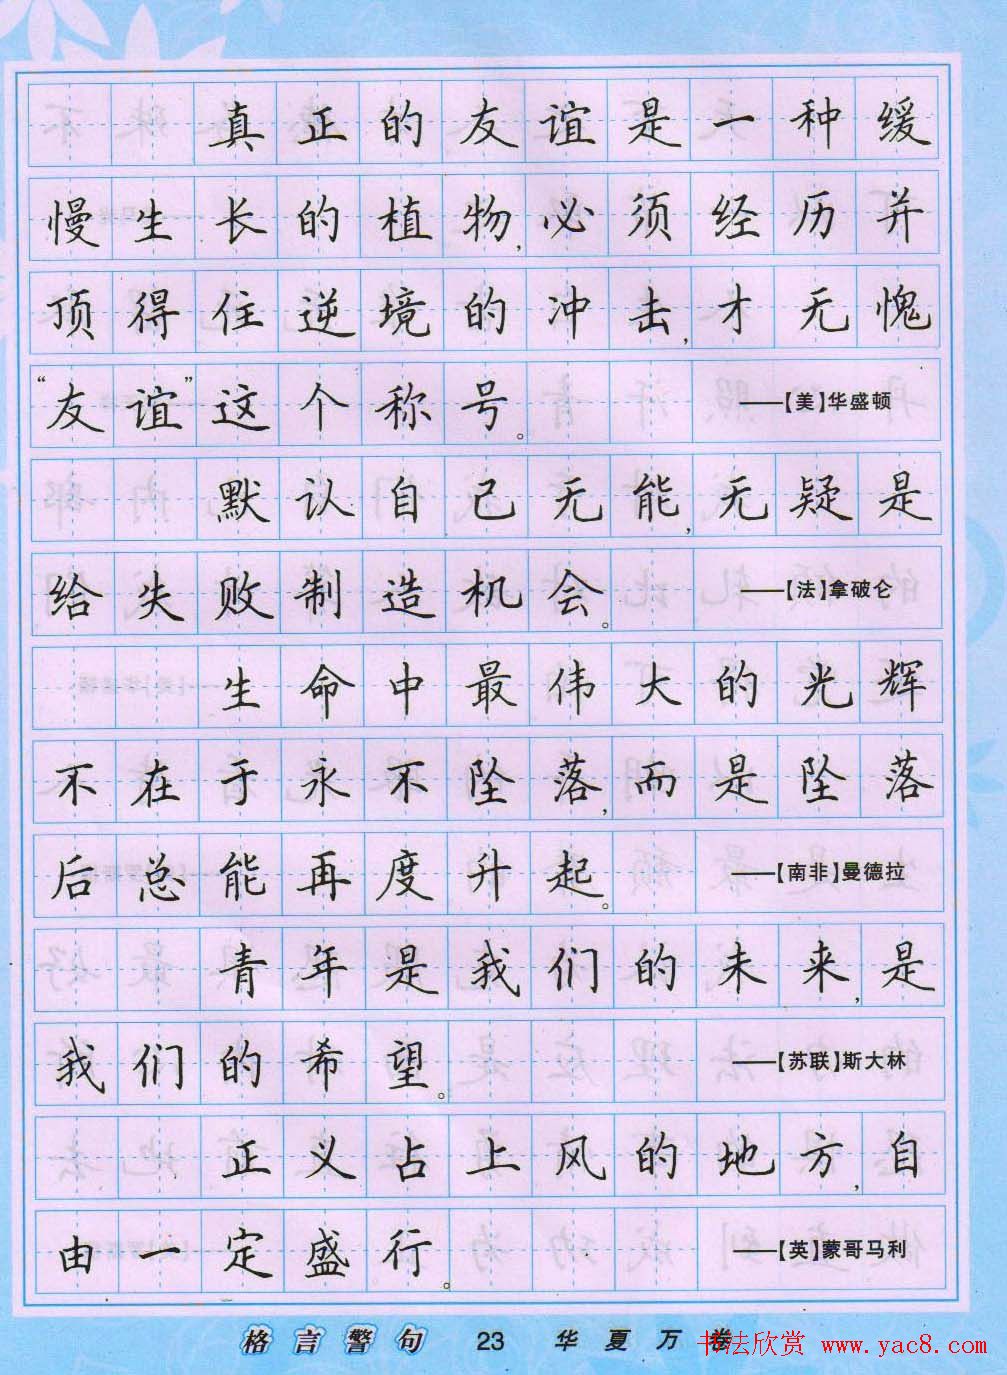 真正的友谊是一种缓
慢生长的植物,必须经历并
顶得住逆境的冲击,才无愧
“友谊”这个称号。 ——【美】华盛顿
默认自己无能,无疑是
给失败制造机会。 ——【法】拿破仑
生命中最伟大的光辉
不在于永不坠落,而是坠落
后总能再度升起。 ——【南非】曼德拉
青年是我们的未来,是
我们的希望。 ——【苏联】斯大林
正义占上风的地方,自
由一定盛行。 ——【英】蒙哥马利
格言警句 23 华夏万卷
书法欣赏 www.yac8.com